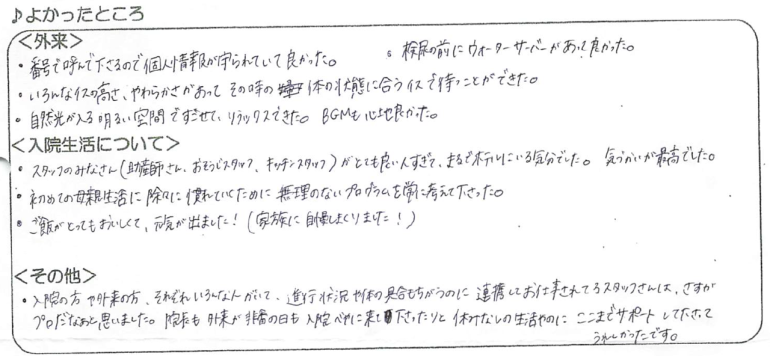 ♪よかったところ
<外来>
・番号で呼んで下さるので個人情報が守られていて良かった。 。検尿の前にウォーターサーバーがあって良かった。
・いろんなイスの高さ、やわらかさがあって その時の 体の状態に合うイスで待つことができた。
・自然光が入る明るい空間ですごせて、リラックスできた。 BGMも心地良かった。
<入院生活について>
・スタッフのみなさん(助産師さん、おそうじスタッフ、キッチンスタッフ)がとても良い人すぎて、まるでホテルにいる気分でした。 気づかいが最高でした。
・初めての母親生活に 除々に 慣れていくために 無理のないプログラムを常に考えて下さった。
・ご飯がとってもおいしくて、元気が出ました!(家族に自慢しまくりました!)
<その他>
・入院の方や外来の方、それぞれいろんな人がいて、進行状況や体の具合もちがうのに 連携してお仕事されてるスタッフさんは、さすが
プロだなぁと思いました。院長も 外来が非番の日も 入院 に来て下さったりと 休みなしの生活やのに ここまでサポートして下さって
うれしかったです。